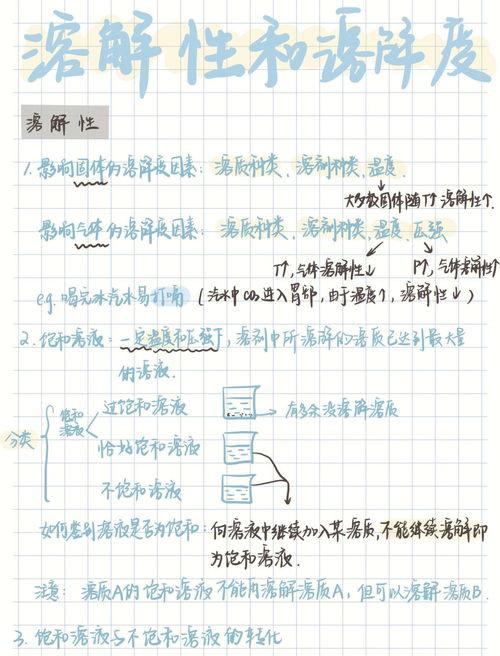 溶解性和溶解度
溶解性
1. 影响固体的溶解度因素: 溶质种类、溶剂种类、温度.
大多数固体随T↑溶解性↑.
影响气体的溶解度因素: 溶质种类、溶剂种类、温度、压强
T↑, 气体溶解性↓ P↑, 气体溶解性↑
e.g. 喝完冰汽水易打嗝 (汽水中CO₂进入胃部, 由于温度↑, 溶解性↓)
2. 饱和溶液: 一定温度和压强下, 溶剂中所溶解的溶质已达到最大量
的溶液.
分类 饱和溶液 过饱和溶液 → 有多余没溶解溶质
恰好饱和溶液
不饱和溶液
如何鉴别溶液是否为饱和: 向溶液中继续加入某溶质, 不能继续溶解即
为饱和溶液.
注意: 溶质A的饱和溶液不能再溶解溶质A, 但可以溶解溶质B.
3. 饱和溶液与不饱和溶液的转化